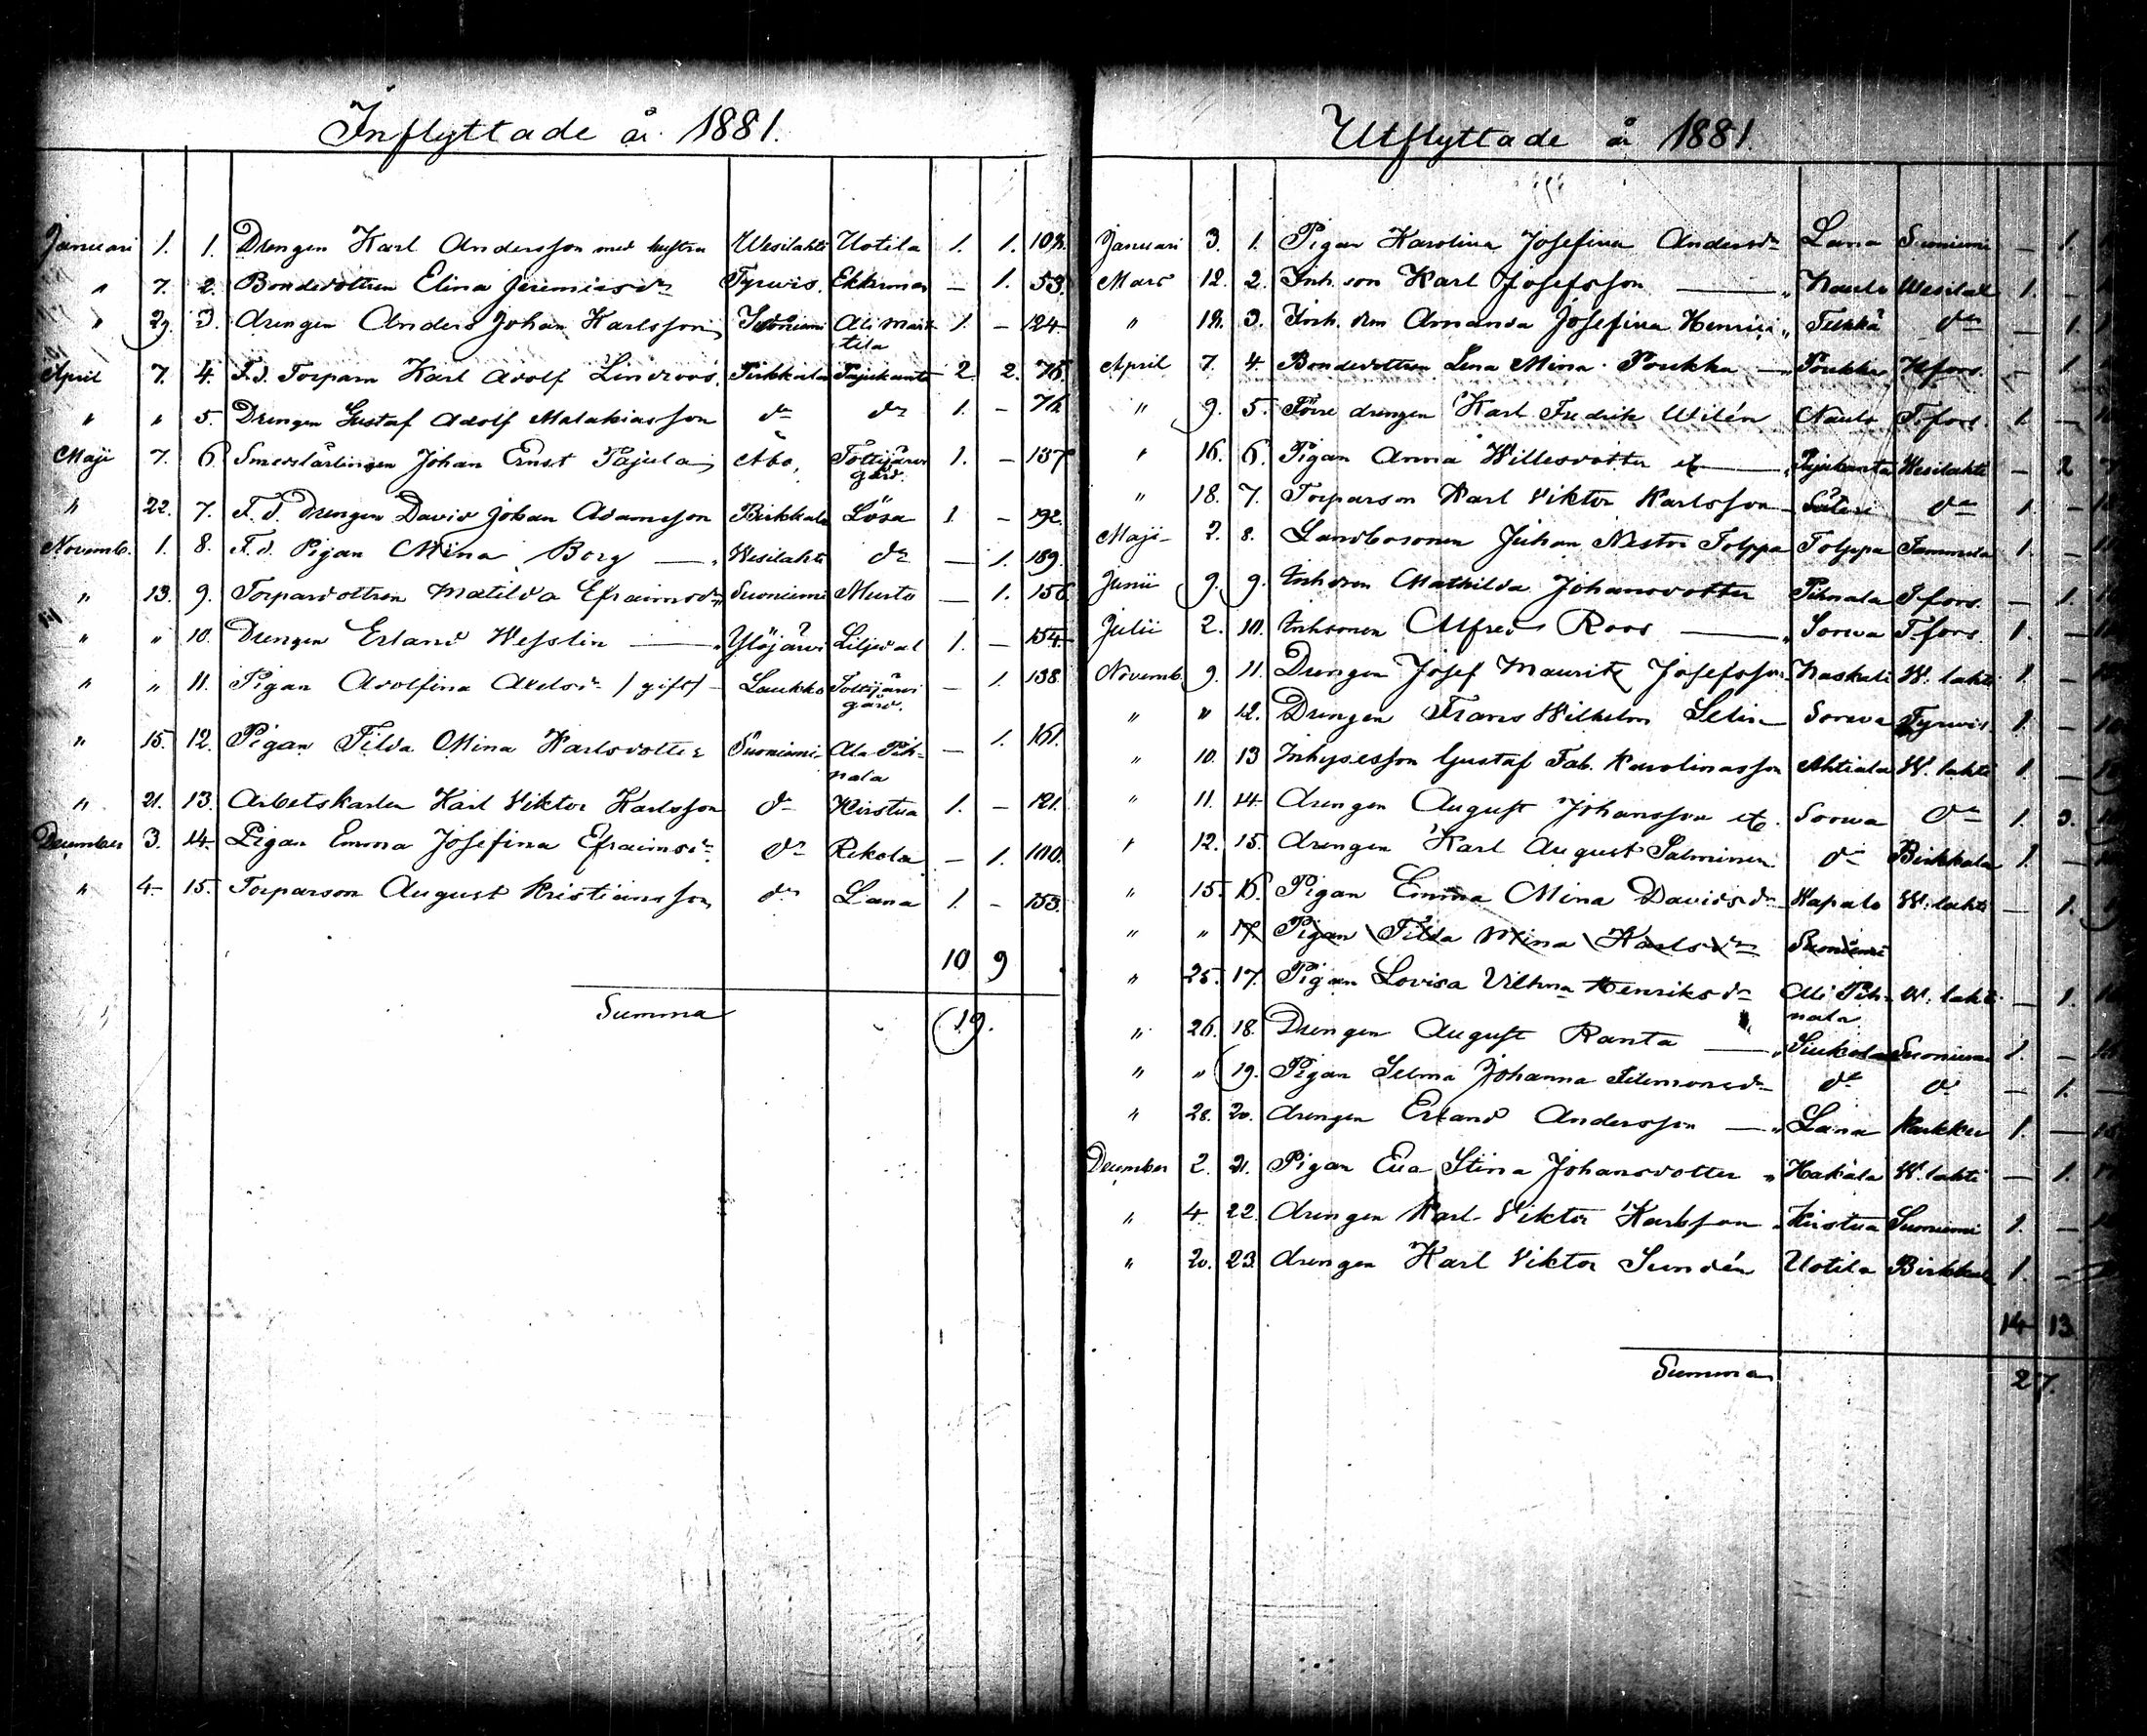 Inflyttade år 1881.
Januari 1. 1. Drengen Karl Andersson med hustru Wesilahti Uotila 1. 1. 108.
" 7. 2. Bondedottren Elina Jeremiasdr Tyrwis. Ekkimais — 1. 53.
" 29. 3. drengen Anders Johan Karlsson Suoniemi Ali Mart- 1. — 124
tila
April 7. 4. F.d. Torparn Karl Adolf Lindroos. Pirkkala Pajukanta 2. 2. 76.
" " 5. Drengen Gustaf Adolf Malakiasson do do 1. — 76.
Maji 7. 6. Smedslärlingen Johan Ernst Pajula Åbo, Tottijärvi 1. — 137
gård.
" 22. 7. F.d. Drengen David Johan Adamsson Birkkala Lösa 1. — 192.
Novemb. 1. 8. F.d. Pigan Mina Borg — Wesilahti do — 1. 189.
" 13. 9. Torpardottren Matilda Efraimsdr Suoniemi Musta — 1. 156
" " 10. Drengen Erland Wesslin — Ylöjärvi Liljedal 1. — 154.
" " 11. Pigan Adolfina Axelsdr / gift / Laukko Tottijärvi — 1. 138.
gård.
" 15. 12. Pigan Tilda Mina Karlsdotter Suoniemi Ala Pih- — 1. 161.
nala
" 21. 13. Arbetskarlen Karl Viktor Karlsson do Kirstua 1. — 121.
December 3. 14. Pigan Emma Josefina Efraimsdr do Rekola — 1. 110.
" 4. 15. Torparson August Kristiansson do Lana 1. — 153.
10 9
Summa 19.
Utflyttade år 1881.
Januari 3. 1. Pigan Karolina Josefina Andersdr Lana Suniemi — 1.
Mars 12. 2. Inh. son Karl Josefsson — Naulo Wesilat 1. —
" 12. 3. Inh. dtm Amanda Josefina Henrici Tukkå do — 1.
April 7. 4. Bondedottren Lena Mina Poukka — Poukka Hfors. — 1.
" 9. 5. Förre drengen Karl Fredrik Wilén Naulo T.fors. 1. —
" 16. 6. Pigan Anna Willesdotter etc — Pajukanta Wesilahti — 2
" 18. 7. Torparson Karl Viktor Karlsson Säteri do 1. —
Maji 2. 8. Landbosonen Juhan Nestor Tolppa Tolppa Tammela 1. —
Junii 9. 9. Inhdren Mathilda Johansdotter Pihnala T.fors. — 1.
Julii 2. 10. Inhsonen Alfred Roos — Sorwa T.fors. 1. —
Novemb. 9. 11. Drengen Josef Maurits Josefsson Naskali W. lahti 1. —
" " 12. Drengen Frans Wilhelm Selin — Sorwa Tyrvis. 1. —
" 10. 13 Inhysesson Gustaf Fab. Karolinasson Ahtiala W. lahti 1. —
" 11. 14. drengen August Johansson etc. Sorwa do 1. 3.
" 12. 15. drengen Karl August Salminen do Birkkala 1. —
" 15. 16. Pigan Emma Mina Davidsdr Kapalo W. lahti — 1.
" " 17. Pigan Tilda Mina Karlsdr Suoniemi
" 25. 17. Pigan Lovisa Vilhma Henriksdr Ali Pih- W. lahti — 1.
nala
" 26. 18. Drengen August Ranta — Siukola Suoniemi 1. —
" " 19. Pigan Selma Johanna Filemonsdr do do — 1. —
" 28. 20. drengen Erland Andersson — Lana Karkku 1. —
December 2. 21. Pigan Eva Stina Johansdotter " Hakala W. lahti — 1.
" 4. 22. drengen Karl Viktor Karlsson Kirstua Suoniemi 1. —
" 20. 23. drengen Karl Viktor Sundén Uotila Birkkala 1. —
14 13
Summa 27.